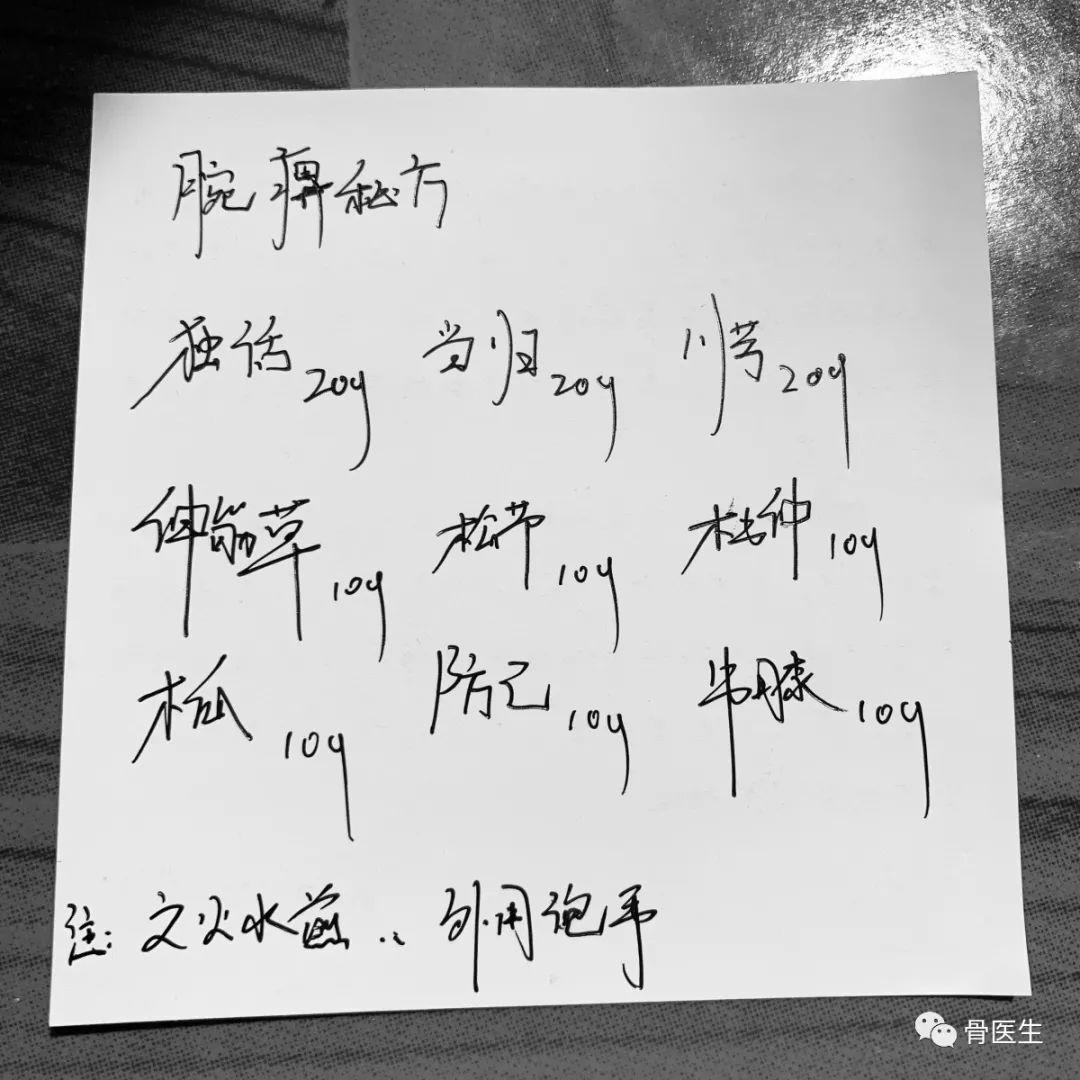 腕痹秘方
独活20g 当归20g 川芎20g
伸筋草10g 松节10g 杜仲10g
木瓜10g 防己10g 牛膝10g
注:文火水煎.. 外用泡手
骨医生